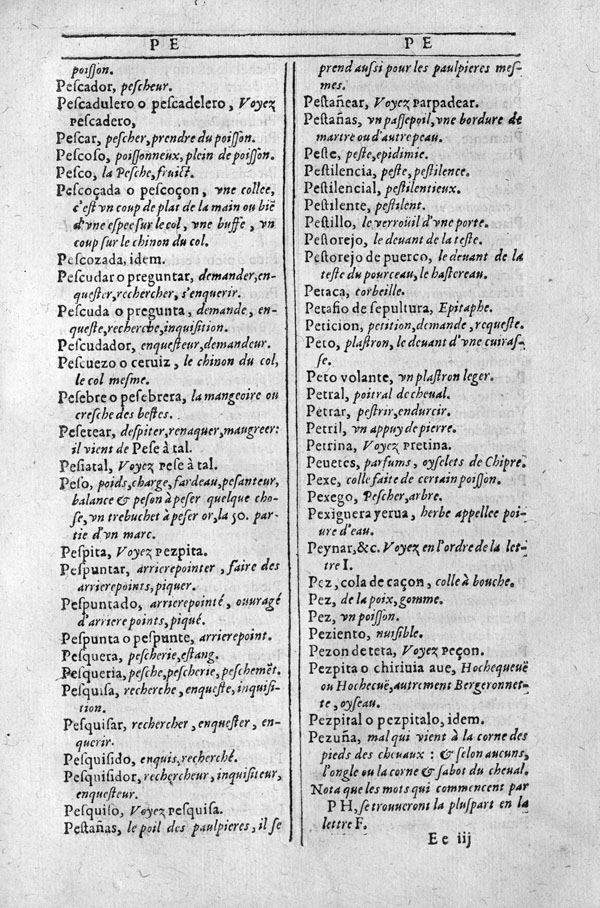 P E
poiſſon.
Peſcador, peſcheur.
Peſcadulero o peſcadelero, Voyez
peſcadero,
Peſcar, peſcher, prendre du poiſſon.
Peſcoſo, poiſſonneux, plein de poiſſon.
Peſco, la Peſche, fruict.
Peſcoçada o peſcoçon, vne collee,
c'eſt vn coup de plat de la main ou biē
d'vne eſpee ſur le col, vne buffe, vn
coup ſur le chinon du col.
Peſcozada, idem.
Peſcudar o preguntar, demander, en-
queſter, rechercher, s'enquerir.
Peſcuda o pregunta, demande, en-
queſte, recherche, inquiſition.
Peſcudador, enqueſteur, demandeur.
Peſcuezo o ceruiz, le chinon du col,
le col meſme.
Peſebre o peſebrera, la mangeoire ou
creſche des beſtes.
Peſetear, deſpiter, renaquer, maugreer:
il vient de Peſe à tal.
Peſiatal, Voyez Peſe à tal.
Peſo, poids, charge, fardeau, peſanteur,
balance & peſon à peſer quelque cho-
ſe, vn trebuchet à peſer or, la 50. par-
tie d'vn marc.
Peſpita, Voyez Pezpita.
Peſpuntar, arrierepointer, faire des
arrierepoints, piquer.
Peſpuntado, arrierepointé, ouuragé
d'arriere points, piqué.
Peſpunta o peſpunte, arrierepoint.
Peſquera, peſcherie, eſtang.
Peſqueria, peſche, peſcherie, peſchemēt.
Peſquiſa, recherche, enqueſte, inquiſi-
tion.
Peſquiſar, rechercher, enqueſter, en-
querir.
Peſquiſido, enquis, recherché.
Peſquiſidor, rechercheur, inquiſiteur,
enqueſteur.
Peſquiſo, Voyez Peſquiſa.
Peſtañas, le poil des paulpieres, il ſe
P E
prend auſſi pour les paulpieres meſ-
mes.
Peſtañear, Voyez parpadear.
Peſtañas, vn paſſepoil, vne bordure de
martre ou d'autre peau.
Peſte, peſte, epidimie.
Peſtilencia, peſte, peſtilence.
Peſtilencial, peſtilentieux.
Peſtilente, peſtilent.
Peſtillo, le verroüil d'vne porte.
Peſtorejo, le deuant de la teſte.
Peſtorejo de puerco, le deuant de la
teſte du pourceau, le haſtereau.
Petaca, corbeille.
Petafio de ſepultura, Epitaphe.
Peticion, petition, demande, requeſte.
Peto, plaſtron, le deuant d'vne cuiraſ-
ſe.
Peto volante, vn plaſtron leger.
Petral, poitral de cheual.
Petrar, peſtrir, endurcir.
Petril, vn appuy de pierre.
Petrina, Voyez Pretina.
Peuetes, parfums, oyſelets de Chipre.
Pexe, colle faite de certain poiſſon.
Pexego, Peſcher, arbre.
Pexiguera yerua, herbe appellee poi-
ure d'eau.
Peynar, &c. Voyez en l'ordre de la let-
tre I.
Pez, cola de caçon, colle à bouche.
Pez, de la poix, gomme.
Pez, vn poiſſon.
Peziento, nuiſible.
Pezon de teta, Voyez Peçon.
Pezpita o chiriuia aue, Hochequeuë
ou Hochecuë, autrement Bergeronnet-
te, oyſeau.
Pezpital o pezpitalo, idem.
Pezuña, mal qui vient à la corne des
pieds des cheuaux : & ſelon aucuns,
l'ongle ou la corne & ſabot du cheual.
Nota que les mots qui commencent par
P H, ſe trouueront la pluſpart en la
lettre F.
E e iij